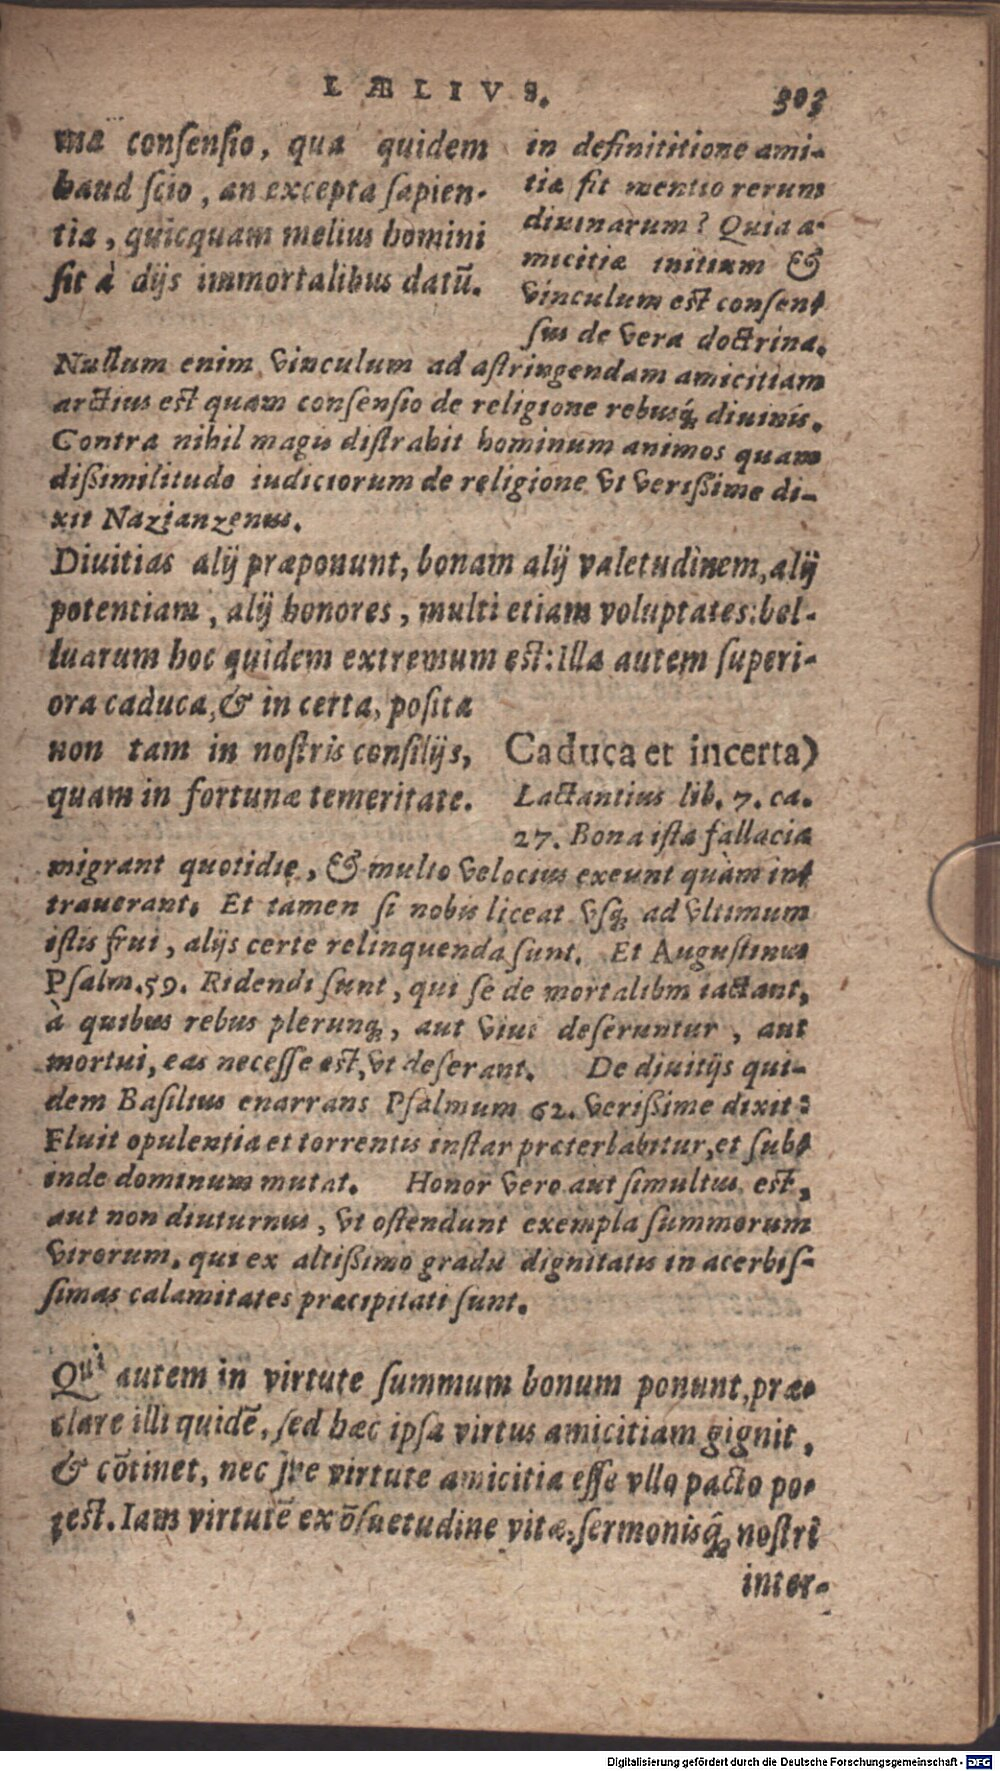 LÆLIVS. 303
ma consensio, qua quidem
haud scio, an excepta sapien-
tia, quicquam melius homini
sit à dijs immortalibus datū.
in definititione ami-
tiæ fit mentio rerum
diuinarum? Quia a-
micitiæ initium &
vinculum est consen-
sus de vera doctrina.
Nullum enim vinculum ad astringendam amicitiam
arctius est quam consensio de religione rebusq́; diuinis.
Contra nihil magis distrahit hominum animos quam
dißimilitudo iudiciorum de religione vt verißime di-
xit Nazianzenus.
Diuitias alij præponunt, bonam alij valetudinem, alij
potentiam, alij honores, multi etiam voluptates: bel-
luarum hoc quidem extremum est: Illa autem superi-
ora caduca, & in certa, posita
non tam in nostris consilijs,
quam in fortunæ temeritate.
Caduca et incerta)
Lactantius lib. 7. ca.
27. Bona ista fallacia
migrant quotidie, & multo velocius exeunt quàm in-
trauerant. Et tamen si nobis liceat vsq; ad vltimum
istis frui, alijs certe relinquenda sunt. Et Augustinus
Psalm. 59. Ridendi sunt, qui se de mortalibm iactant,
à quibus rebus plerunq;, aut viui deseruntur, aut
mortui, eas necesse est, vt deserant. De diuitijs qui-
dem Basilius enarrans Psalmum 62. verißime dixit:
Fluit opulentia et torrentis instar præterlabitur, et sub-
inde dominum mutat. Honor vero aut simultus est,
aut non diuturnus, vt ostendunt exempla summorum
virorum, qui ex altißimo gradu dignitatis in acerbis-
simas calamitates præcipitati sunt.
Qui autem in virtute summum bonum ponunt, præ-
clare illi quidē, sed hæc ipsa virtus amicitiam gignit,
& cōtinet, nec sine virtute amicitia esse vllo pacto po-
test. Iam virtutē ex cōsuetudine vitæ, sermonisq́; nostri
inter-
Digitalisierung gefördert durch die Deutsche Forschungsgemeinschaft - DFG